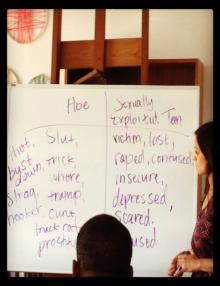 Hoe
thot,
bust
down,
hooker
Slut,
trick,
whore,
tramp,
Cunt,
truck rat
Sexually
Exploited Teen
victim, lost,
raped, confused
insecure,
depressed,
scared.
used